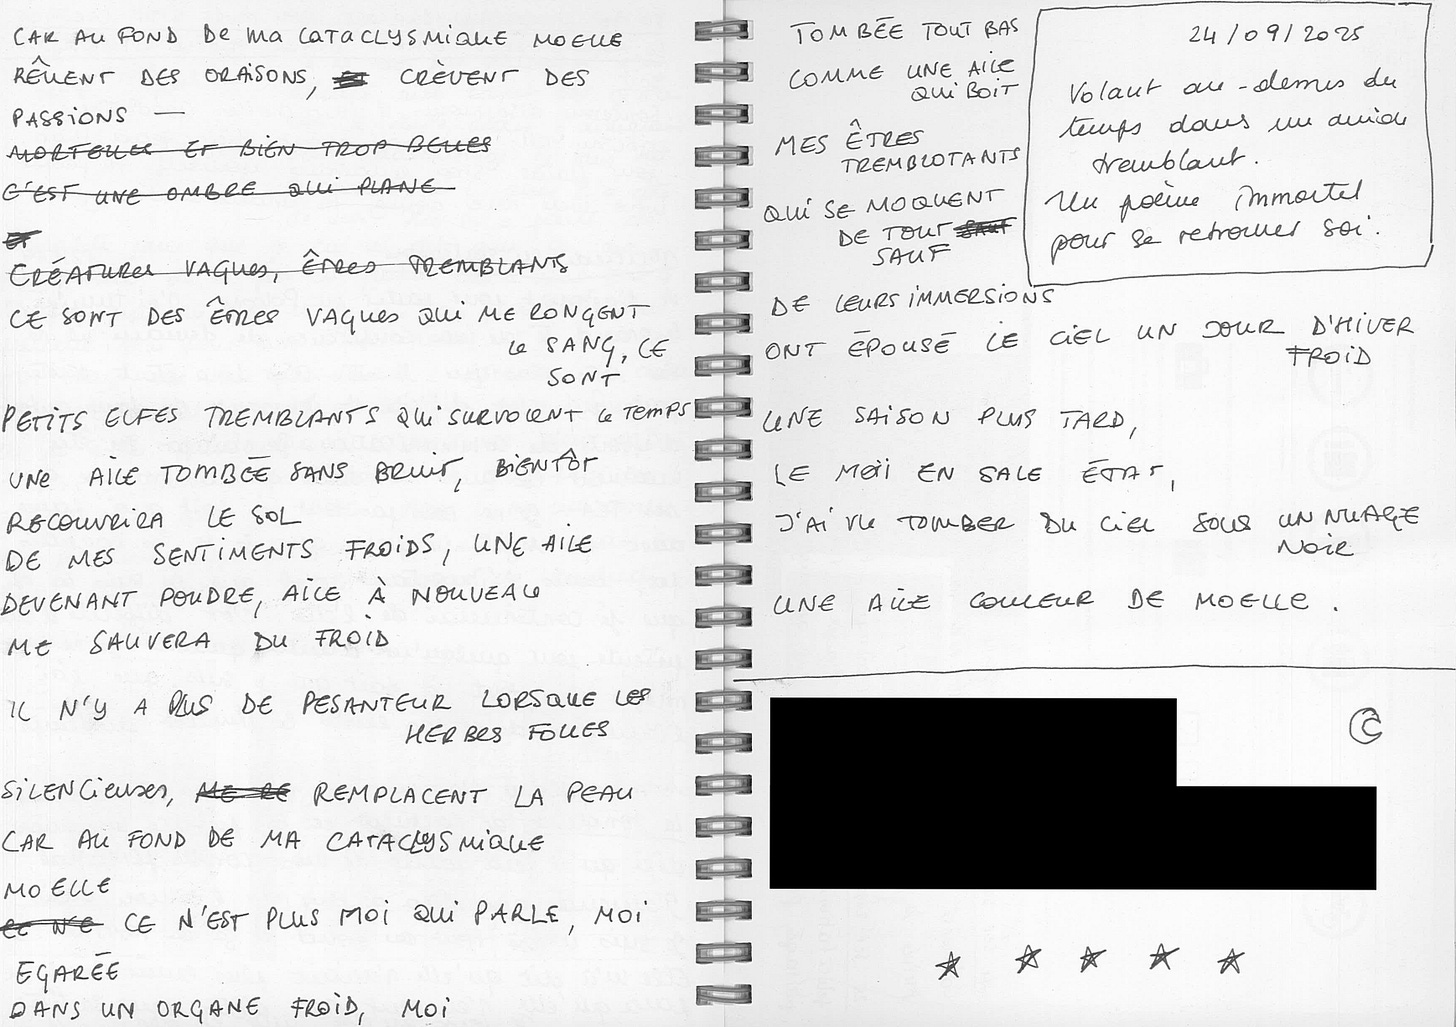 CAR AU FOND DE MA CATACLYSMIQUE MOELLE
RÊVENT DES ORAISONS, CRÈVENT DES
PASSIONS —
MORTELLES ET BIEN TROP BELLES
C'EST UNE OMBRE QUI PLANE
ET
CRÉATURES VAGUES, ÊTRES TREMBLANTS
CE SONT DES ÊTRES VAGUES QUI ME RONGENT
LE SANG, CE
SONT
PETITS ELFES TREMBLANTS QUI SURVOLENT LE TEMPS
UNE AILE TOMBÉE SANS BRUIT, BIENTÔT
RECOUVRIRA LE SOL
DE MES SENTIMENTS FROIDS, UNE AILE
DEVENANT POUDRE, AILE À NOUVEAU
ME SAUVERA DU FROID
IL N'Y A PLUS DE PESANTEUR LORSQUE LES
HERBES FOLLES
SILENCIEUSES, ME RE REMPLACENT LA PEAU
CAR AU FOND DE MA CATACLYSMIQUE
MOELLE
CE N'E CE N'EST PLUS MOI QUI PARLE, MOI
EGARÉE
DANS UN ORGANE FROID, MOI
TOMBÉE TOUT BAS
COMME UNE AILE
QUI BOIT
MES ÊTRES
TREMBLOTANTS
QUI SE MOQUENT
DE TOUT SAUF
SAUF
DE LEURS IMMERSIONS
ONT ÉPOUSÉ LE CIEL UN JOUR D'HIVER
FROID
UNE SAISON PLUS TARD,
LE MOI EN SALE ÉTAT,
J'AI VU TOMBER DU CIEL SOUS UN NUAGE
NOIR
UNE AILE COULEUR DE MOELLE.
24/09/2025
Volant au-dessus du
temps dans un avion
tremblant.
Un poème immortel
pour se retrouver soi.